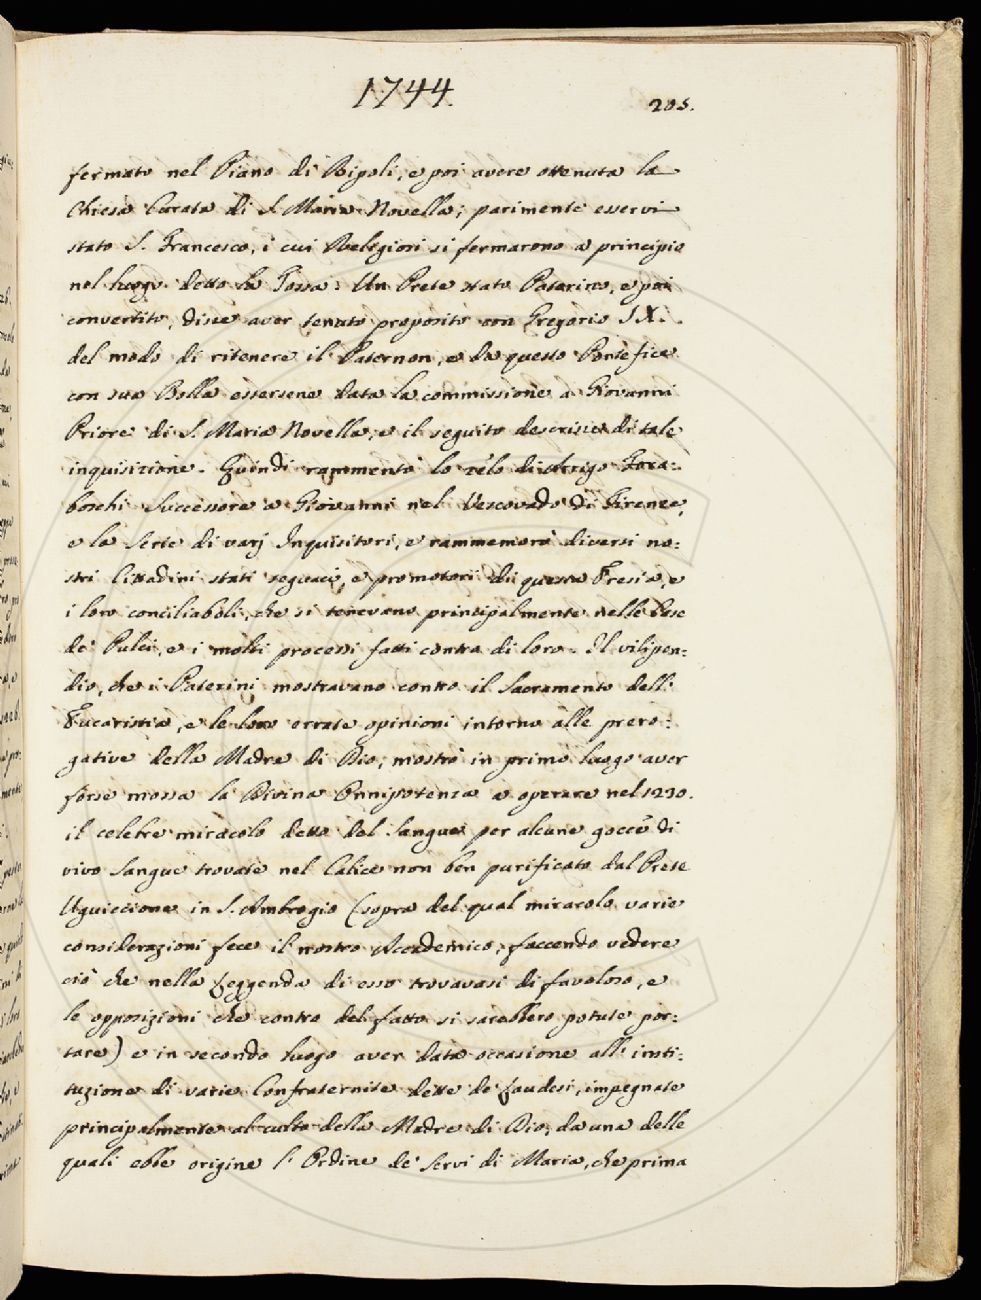 1744
205.
fermato nel Piano di Ripoli, e poi avere ottenuta la
Chiesa Curata di S. Maria Novella; parimente esservi
stato S. Francesco, i cui Relegiori si fermarono a principio
nel luogo detto la Fossa: Un Prete stato Paterino, e poi
convertito, disse aver tenuto proposito con Gregorio IX.
del modo di ritenere il Paternon, e da questo Pontefice
con sua Bolla essersene data la commissione a Giovanni
Priore di S. Maria Novella, e il seguito descrisse di tale
inquisizione. Quindi rammentò lo zélo di Arrigo Fora:
boschi Successore a Giovanni nel Vescovado di Firenze,
e la Serie di varj Inquisitori, e rammemorò diversi no:
stri Cittadini stati seguaci, e promotori di questa Eresia, e
i loro conciliaboli, che si tenevano principalmente nelle Case
de' Pulci, e i molti processi fatti contra di loro. Il vilipen:
dio, che i Paterini mostravano contro il Sacramento dell'
Eucaristia, e le loro errate opinioni intorno alle prero:
gative della Madre di Dio, mostrò in primo luogo aver
forse mossa la Divina Onnipotenza a operare nel 1230.
il celebre miracolo detto del Sangue per alcune gocce di
vivo Sangue trovate nel Calice non ben purificato dal Prete
Uguiccione in S. Ambrogio (sopra del qual miracolo varie
considerazioni fece il nostro Accademico, faccendo vedere
ciò che nella Leggenda di esso trovavasi di favoloso, e
le opposizioni che contro del fatto si sarebbero potute por:
tare) e in secondo luogo aver data occasione all' insti:
tuzione di varie Confraternite dette de' Laudesi, impegnate
principalmente al culto della Madre di Dio, da una delle
quali ebbe origine l' Ordine de' Servi di Maria, che prima